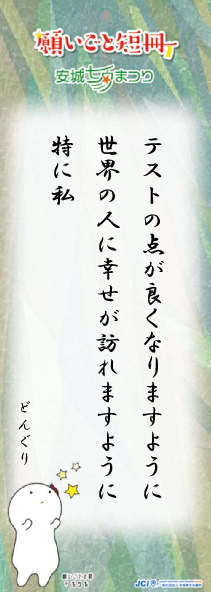 願いごと短冊
安城七夕まつり
テストの点が良くなりますように
世界の人に幸せが訪れますように
特に私
どんぐり
JCI